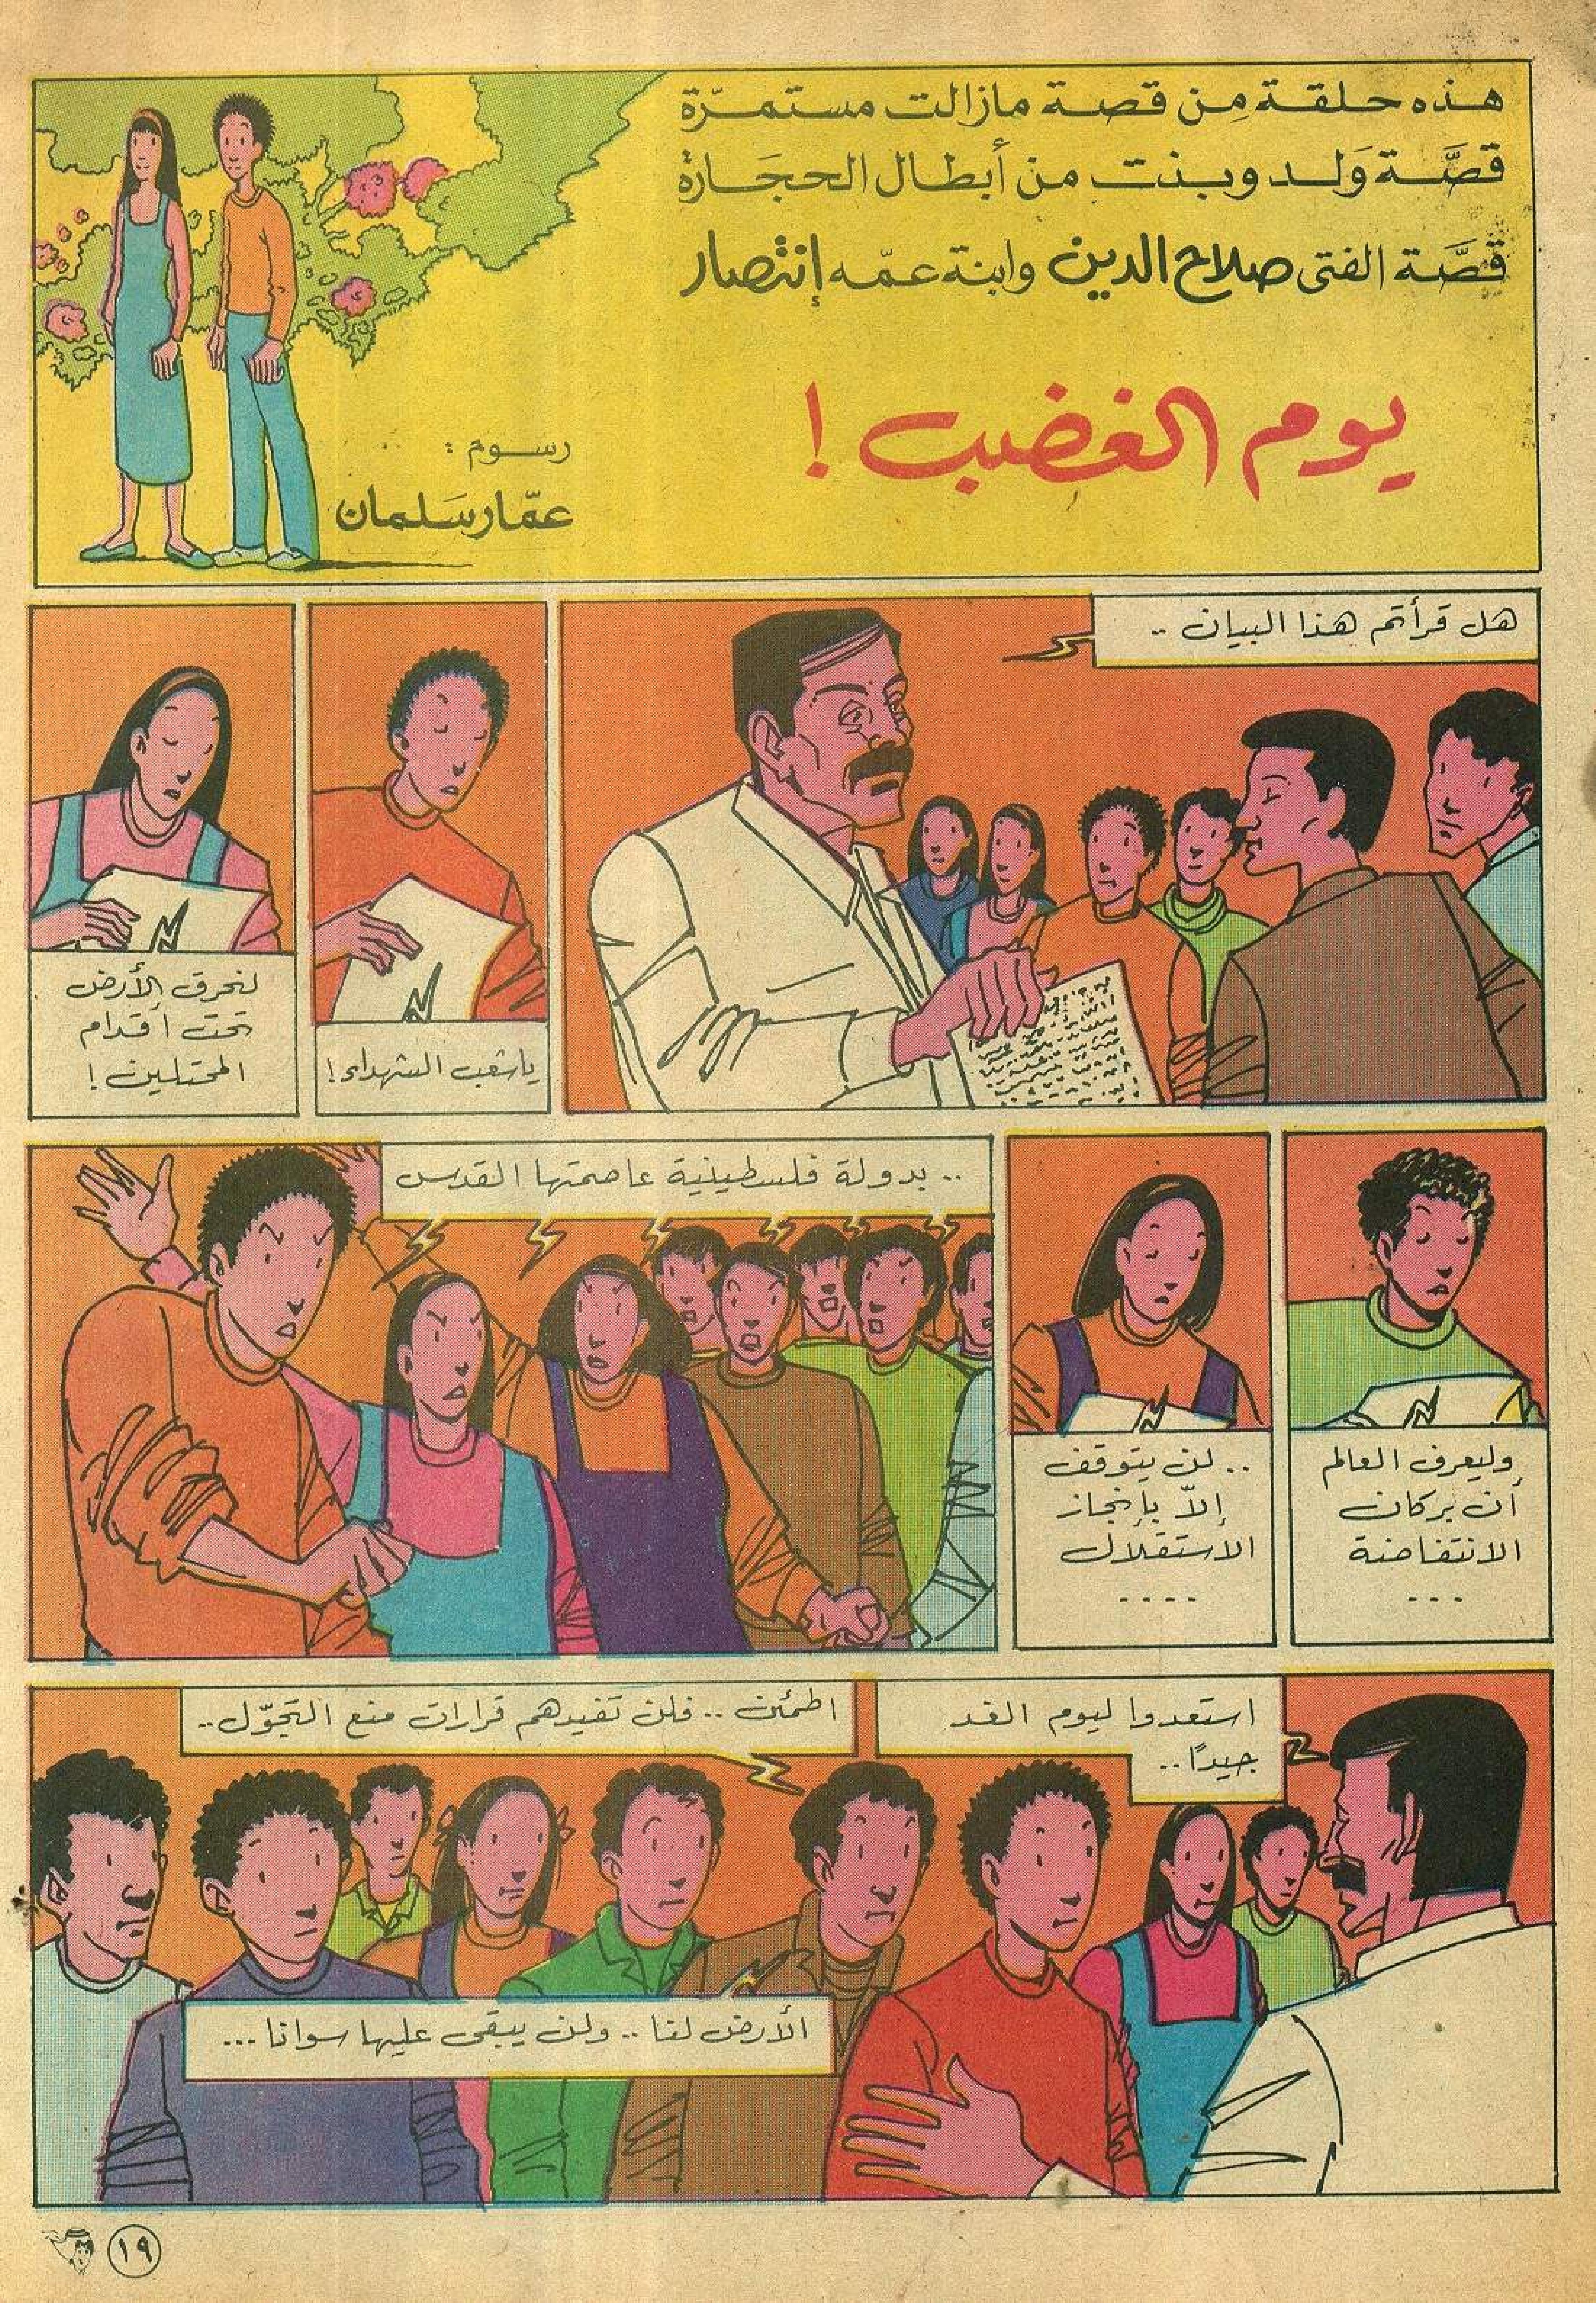 هذه حلقة مِن قصة مازالت مستمرّة
قصَّة وَلد وبنت من أبطال الحجَارة
قصَّة الفتى صلاح الدين وابنة عمّه إنتصار
يوم الغضب !
رسوم :
عمّار سَلمان
هل قرأتم هذا البيان ..
ياشعب الشهداء !
لنحرق الأرض
تحت أقدام
المحتلين !
وليعرف العالم
أن بركان
الانتفاضة
...
.. لن يتوقف
إلاّ بإنجاز
الاستقلال
....
.. بدولة فلسطينية عاصمتها القدس
استعدوا ليوم الغد
جيدًا..
اطمئن .. فلن تفيدهم قرارات منع التجوّل..
الأرض لنا .. ولن يبقى عليها سوانا ...
١٩